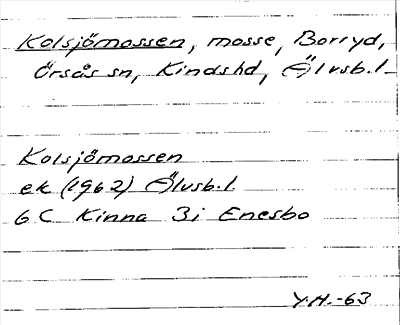 Kolsjömossen, mosse, Borryd,
Örsås sn, Kindshd, Älvsb.l
Kolsjömossen
ek (1962) Älvsb.l.
6 C Kinna 3i Enesbo
Y.H.-63